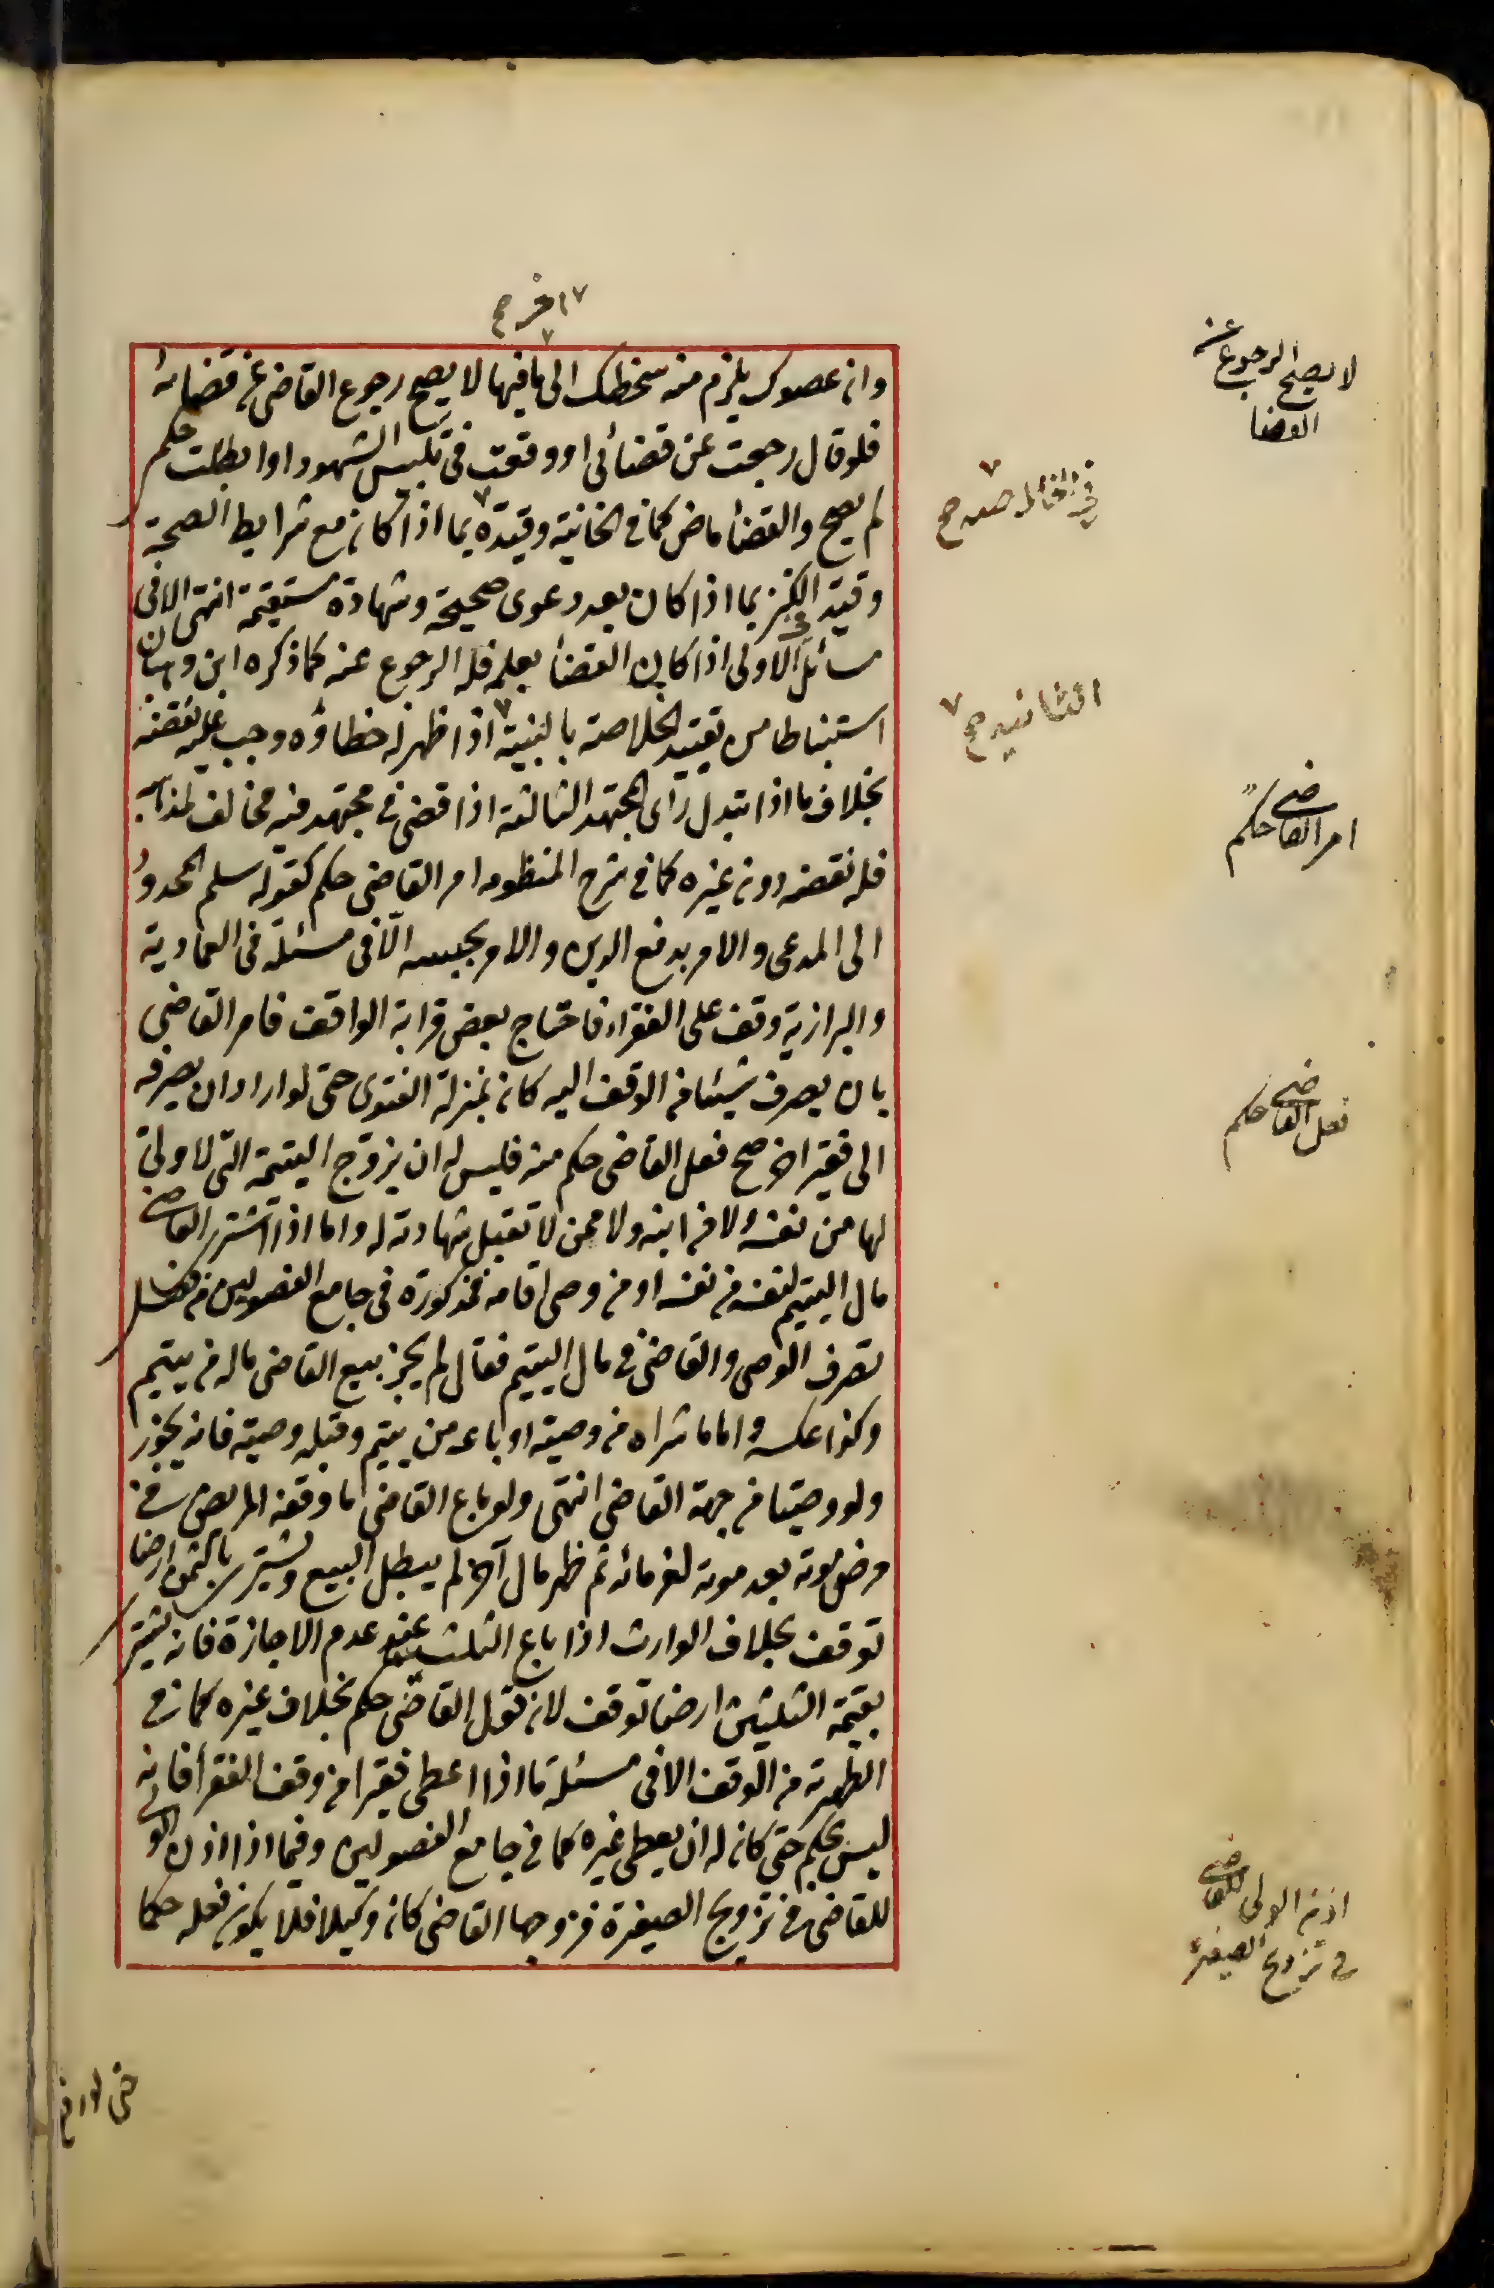 اخر صح
وان عصوك يلزم منه سخطك الى ما فيها لا يصح رجوع القاضى عن قضائه
فلو قال رجعت عن قضائى او وقعت فى تلبيس الشهود او ابطلت حكمى
لم يصح والقضأ ماض كما فى الخانية وقيده بما اذا كان مع شرايط الصحة
وقيد فى الكنز بما اذا كان بعد دعوى صحيحة وشهادة مستقيمة انتهى الا فى
مسائل الاولى اذا كان القضأ بعلمه فله الرجوع عنه كما ذكره ابن وهبان
استنباطا من تقييد الخلاصة بالبينة اذا ظهر له خطاؤه وجب عليه نقضه
بخلاف ما اذا تبدل رأى المجتهد الثالثة اذا قضى فى مجتهد فيه مخالف لمذهبه
فله نقضه دون غيره كما فى شرح المنظومه امر القاضى حكم كقوله سلم المحدود
الى المدعى والامر بدفع الدين والامر بحبسه الّا فى مسئلة فى العمادية
والبزازية وقف على الفقرا فاحتاج بعض قرابة الواقف فامر القاضى
بان يصرف شيئا من الوقف اليه كان بمنزلة الفتوى حتى لو اراد ان يصرفه
الى فقير اخر صح فعل القاضى حكم منه فليس له ان يزوّج اليتيمة التى لا ولىّ
لها من نفسه ولا من ابنه ولا ممن لا تقبل شهادته له واما اذا اشترى القاضى
مال اليتيم لنفسه من نفسه او من وصى اقامه فمذكورة فى جامع الفصولين من فصل
تصرف الوصى والقاضى فى مال اليتيم فقال لم يجز بيع القاضى ماله من يتيم
وكذا عكسه واما ما شراه من وصيه او باعه من يتيم وقبله وصيه فانه يجوز
ولو وصيا من جهة القاضى انتهى ولو باع القاضى ما وقفه المريض فى
مرض موته بعد موته لغرمائه ثم ظهر مال آخر لم يبطل البيع ويشترى بالثمن ارضا
توقف بخلاف الوارث اذا باع الثلث عند عدم الاجازة فانه يشترى
بقيمة الثلثين ارضا توقف لان فعل القاضى حكم بخلاف غيره كما فى
الظهيرية من الوقف الا فى مسئلة ما اذا اعطى فقيرا من وقف الفقرأ فانه
ليس بحكم حتى كان له ان يعطى غيره كما فى جامع الفصولين وفيما اذا اذن الولى
للقاضى فى تزويج الصغيرة فزوجها القاضى كان وكيلا فلا يكون فعله حكما
لا يصح الرجوع عن
القضا
صح
الثانيه صح
امر القاضى حكم
فعل القاضى حكم
اذن الولى للقاضى
فى تزويج الصغيرة
حتى لو رفع